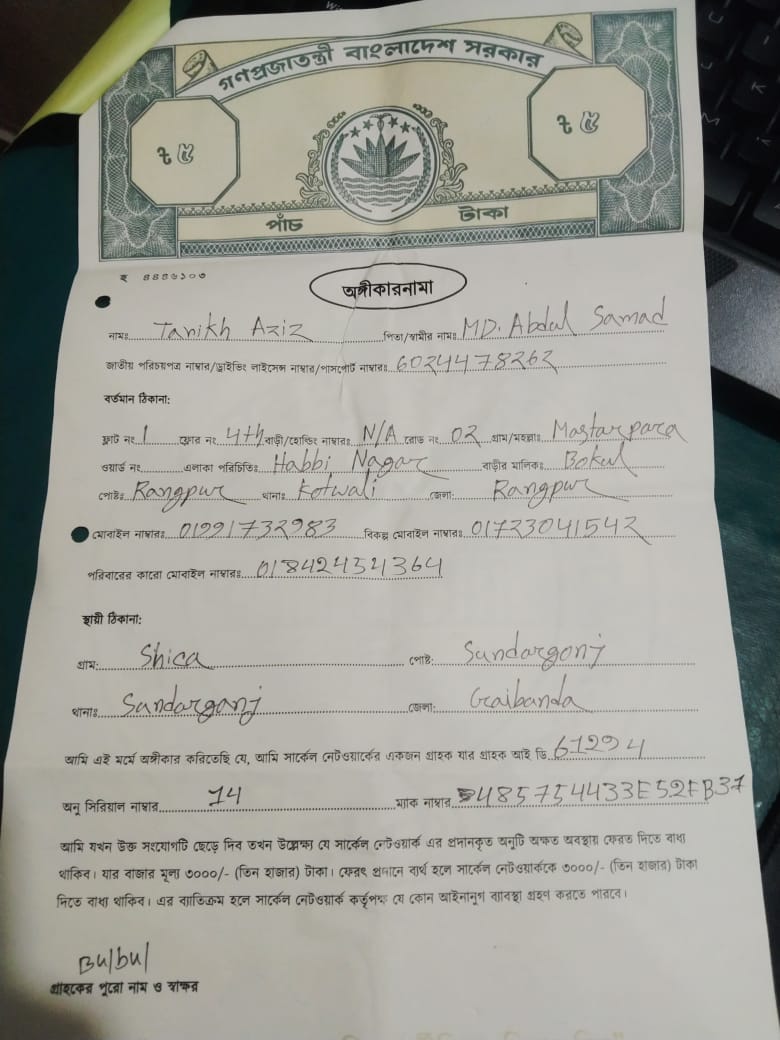 গণপ্রজাতন্ত্রী বাংলাদেশ সরকার
৳ ৫ ৳ ৫
পাঁচ টাকা
অঙ্গীকারনামা
নামঃ Tanikh Aziz পিতা/স্বামীর নামঃ MD. Abdul Samad
জাতীয় পরিচয়পত্র নাম্বার/ড্রাইভিং লাইসেন্স নাম্বার/পাসপোর্ট নাম্বারঃ 6024478262
বর্তমান ঠিকানা:
ফ্লাট নং 1 ফ্লোর নং 4th বাড়ী/হোল্ডিং নাম্বারঃ N/A রোড নং 02 গ্রাম/মহল্লাঃ Mastarpara
ওয়ার্ড নং এলাকা পরিচিতিঃ Habbi Nagar বাড়ীর মালিকঃ Bokul
পোষ্টঃ Rangpur থানাঃ Kotwali জেলা: Rangpur
মোবাইল নাম্বারঃ 01991732983 বিকল্প মোবাইল নাম্বারঃ 01723041542
পরিবারের কারো মোবাইল নাম্বারঃ 018424542364
স্থায়ী ঠিকানা:
গ্রাম: Shica পোষ্ট: Sundargonj
থানাঃ Sundarganj জেলা: Gaibanda
আমি এই মর্মে অঙ্গীকার করিতেছি যে, আমি সার্কেল নেটওয়ার্কের একজন গ্রাহক যার গ্রাহক আই ডি 61294
অনু সিরিয়াল নাম্বার 14 ম্যাক নাম্বার 485754433E52FB37
আমি যখন উক্ত সংযোগটি ছেড়ে দিব তখন উল্লেক্ষ্য যে সার্কেল নেটওয়ার্ক এর প্রদানকৃত অনুটি অক্ষত অবস্থায় ফেরত দিতে বাধ্য
থাকিব। যার বাজার মূল্য ৩০০০/- (তিন হাজার) টাকা। ফেরৎ প্রদানে ব্যর্থ হলে সার্কেল নেটওয়ার্ককে ৩০০০/- (তিন হাজার) টাকা
দিতে বাধ্য থাকিব। এর ব্যতিক্রম হলে সার্কেল নেটওয়ার্ক কর্তৃপক্ষ যে কোন আইনানুগ ব্যাবস্থা গ্রহণ করতে পারবে।
Bulbul
গ্রাহকের পুরো নাম ও স্বাক্ষর